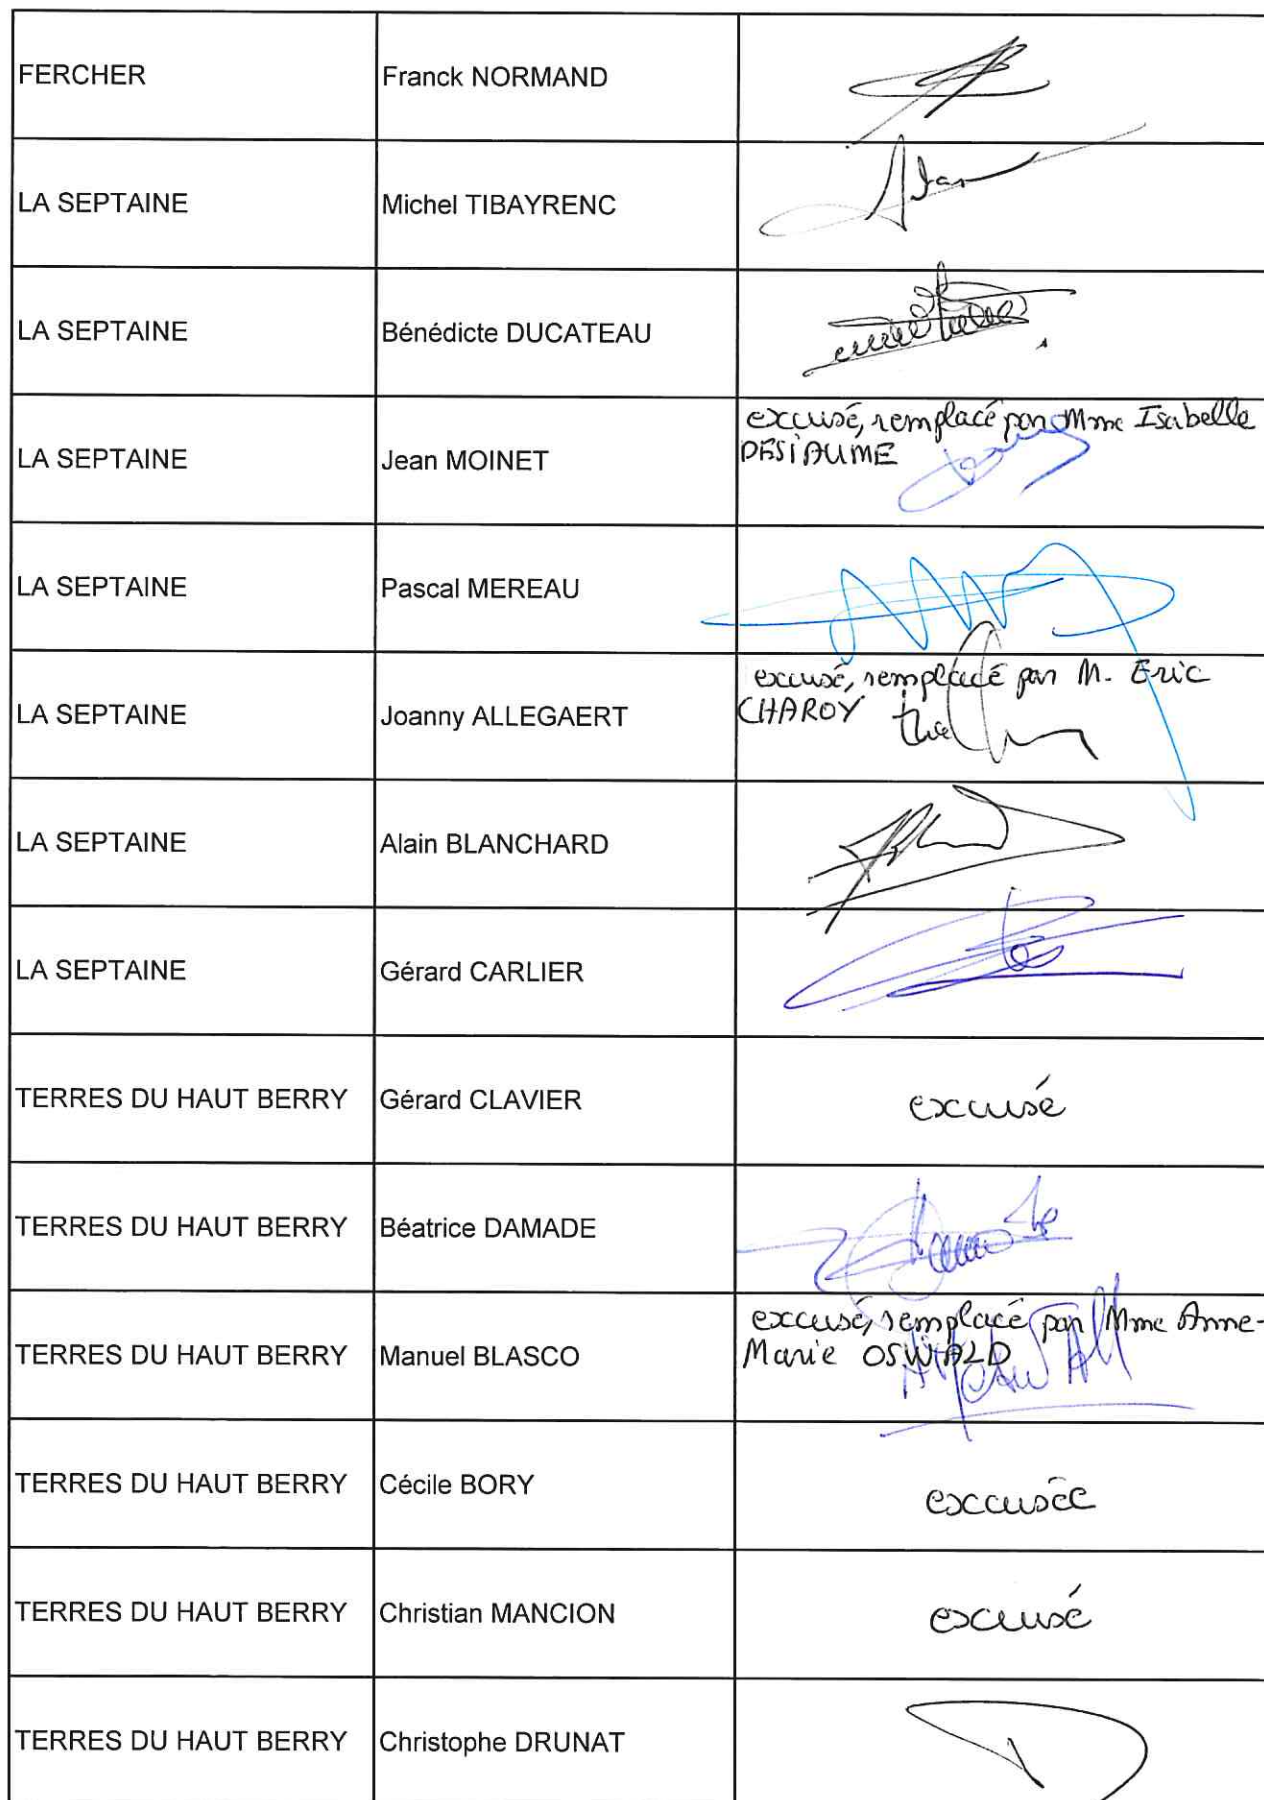 FERCHER Franck NORMAND
LA SEPTAINE Michel TIBAYRENC
LA SEPTAINE Bénédicte DUCATEAU
LA SEPTAINE Jean MOINET excusé, remplacé par Mme Isabelle
DESIAUME
LA SEPTAINE Pascal MEREAU
LA SEPTAINE Joanny ALLEGAERT excusé, remplacé par M. Eric
CHAROY
LA SEPTAINE Alain BLANCHARD
LA SEPTAINE Gérard CARLIER
TERRES DU HAUT BERRY Gérard CLAVIER excusé
TERRES DU HAUT BERRY Béatrice DAMADE
TERRES DU HAUT BERRY Manuel BLASCO excusé, remplacé par Mme Anne-
Marie OSWALD
TERRES DU HAUT BERRY Cécile BORY excusée
TERRES DU HAUT BERRY Christian MANCION excusé
TERRES DU HAUT BERRY Christophe DRUNAT